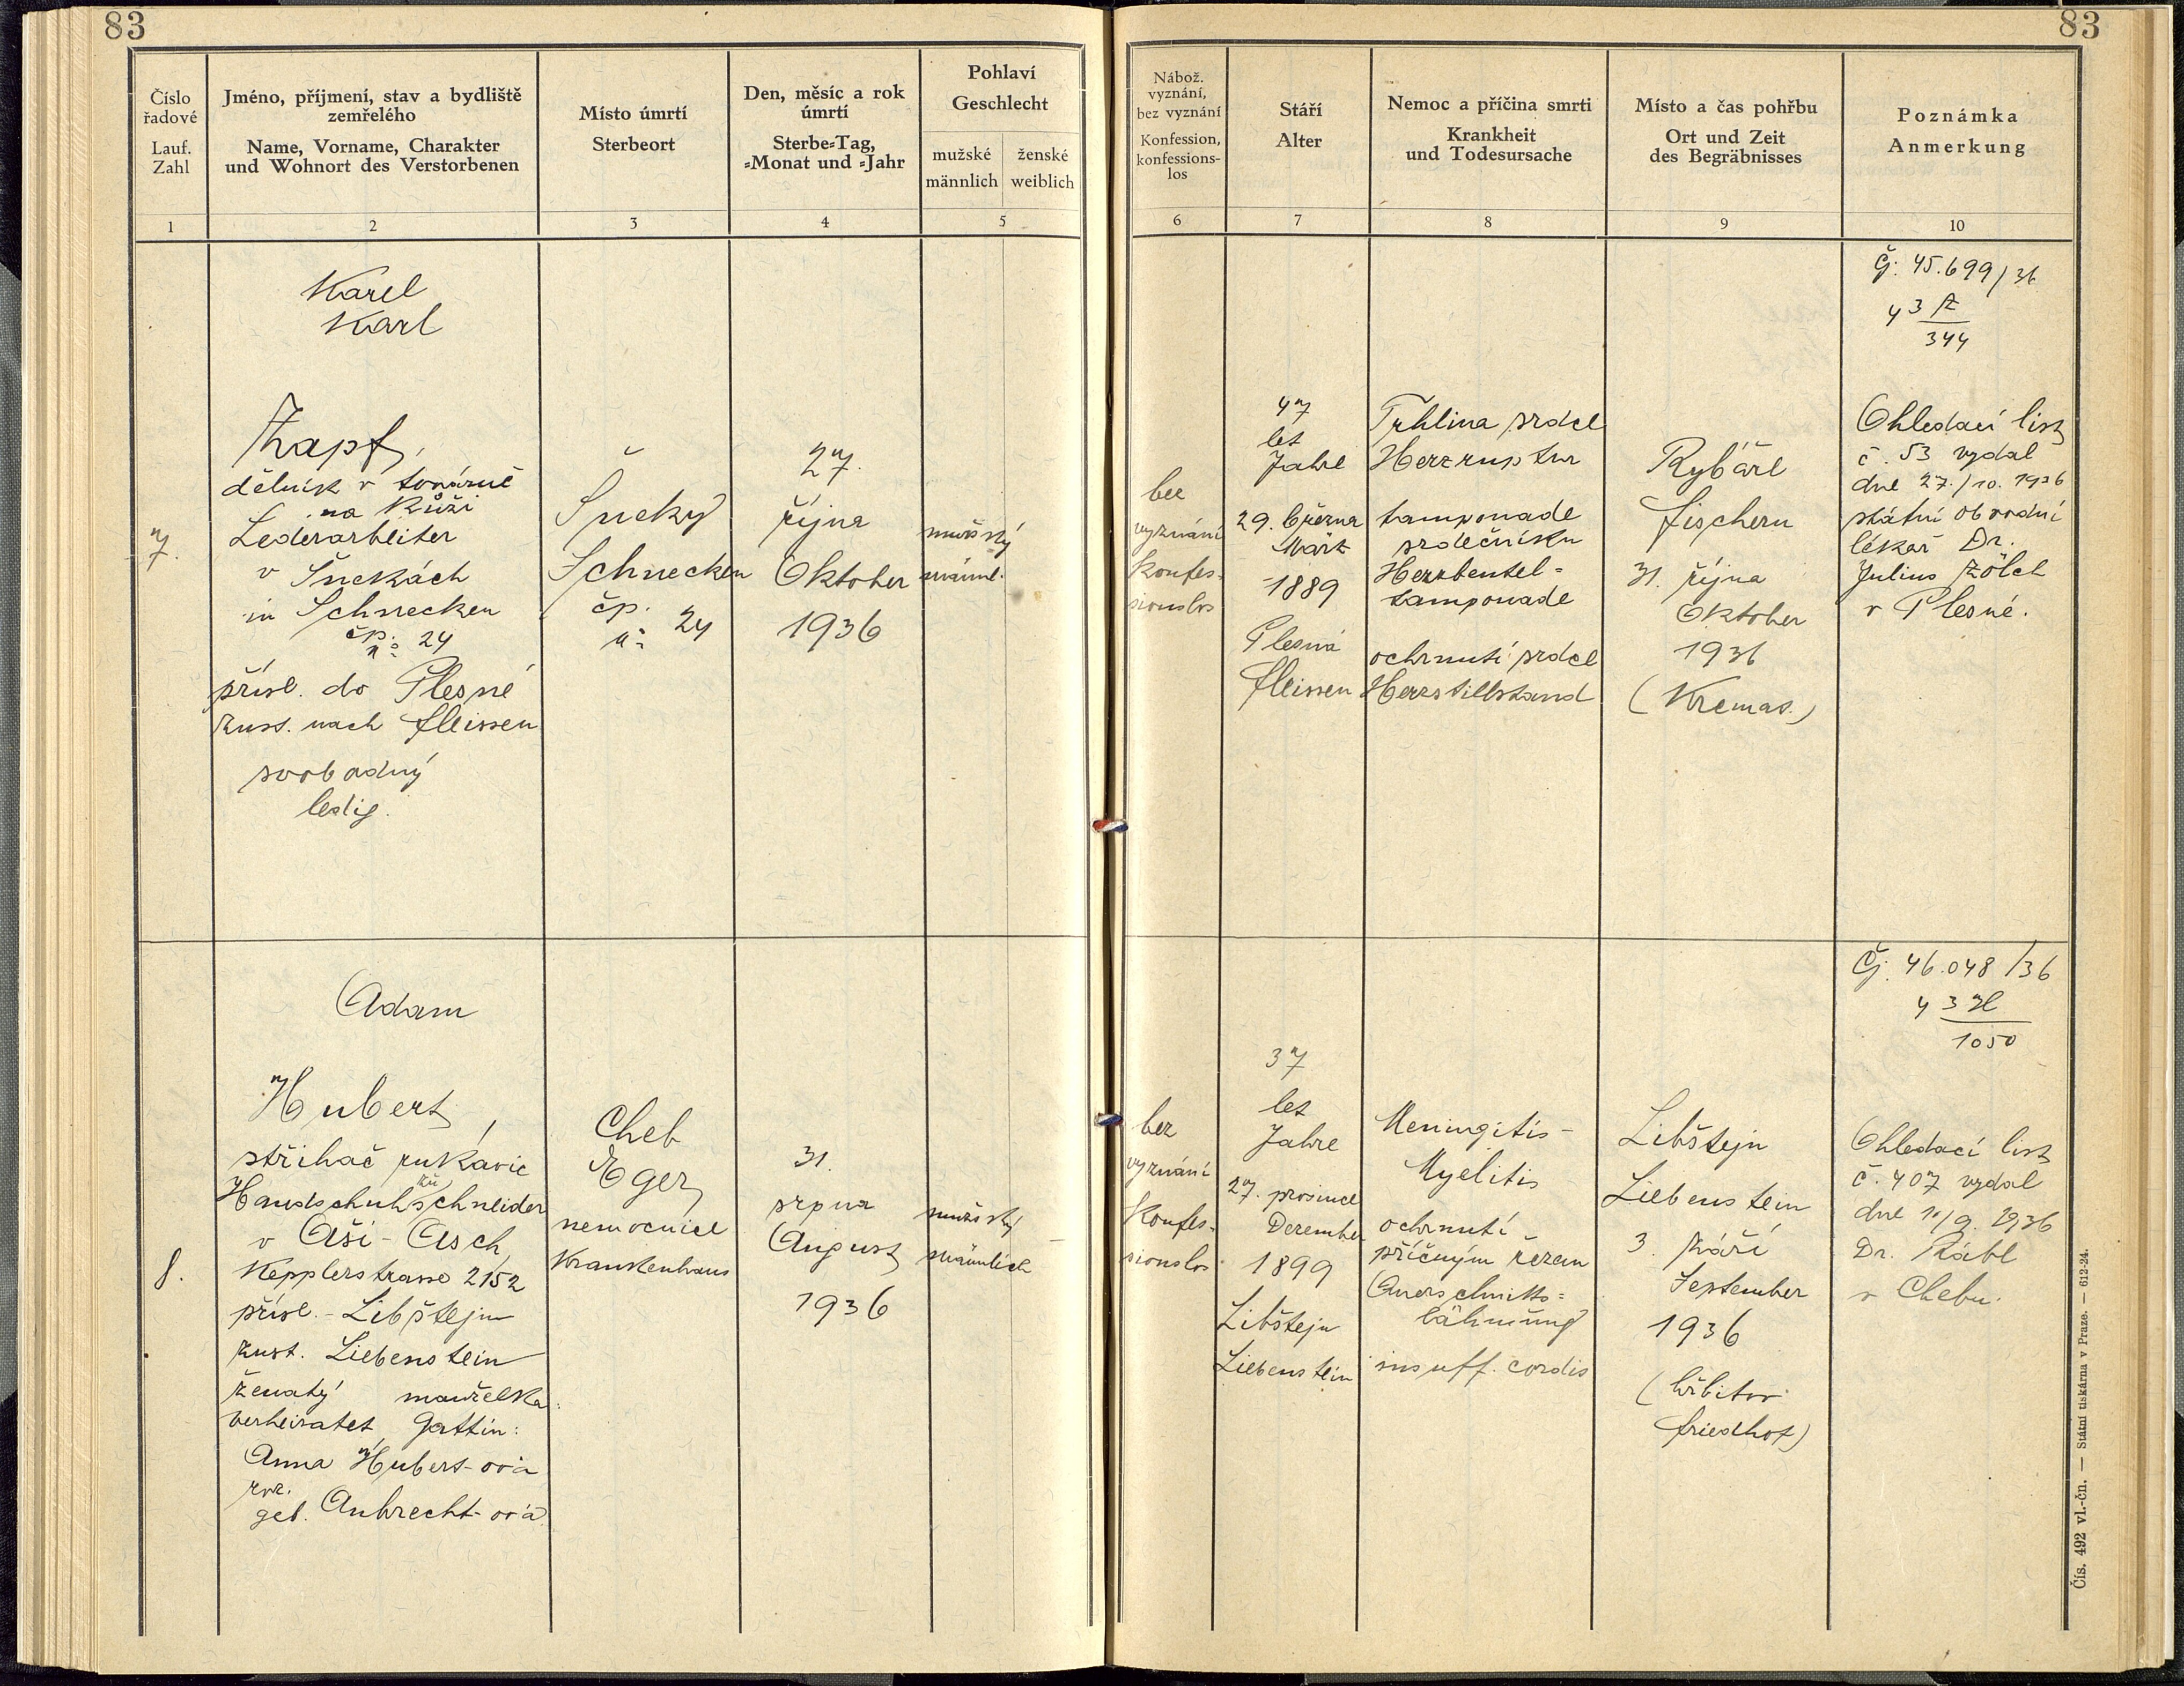 83
83
Číslo
řadové
Lauf.
Zahl
Jméno, příjmení, stav a bydliště
zemřelého
Name, Vorname, Charakter
und Wohnort des Verstorbenen
Místo úmrtí
Sterbeort
Den, měsíc a rok
úmrtí
Sterbe-Tag,
-Monat und -Jahr
Pohlaví
Geschlecht
mužské
männlich
ženské
weiblich
Nábož.
vyznání,
bez vyznání
Konfession,
konfessions-
los
Stáří
Alter
Nemoc a příčina smrti
Krankheit
und Todesursache
Místo a čas pohřbu
Ort und Zeit
des Begräbnisses
Poznámka
Anmerkung
1
2
3
4
5
6
7
8
9
10
7.
Karel
Karl
Zapf,
dělník v továrně
na kůži
Lederarbeiter
v Šnekách
in Schnecken
čp. 24
n:
přísl. do Plesné
zust. nach Fleissen
svobodný
ledig.
Šneky
Schnecken
čp. 24
n:
27.
října
Oktober
1936
mužský
männl.
bez
vyznání
Konfes-
sionslos
47
let
Jahre
29. března
März
1889
Plesná
Fleissen
Trhlina srdce
Herzruptur
tamponade
srdečníku
Herzbeutel-
tamponade
ochrnutí srdce
Herzstillstand
Rybáře
Fischern
31. října
Oktober
1936
(Kremat.)
Čj. 45.699/36
43 Z
344
Ohledací list
č. 53 vydal
dne 27./10. 1936
státní obvodní
lékař Dr.
Julius Zölch
v Plesné.
8.
Adam
Hubert,
střihač rukavic
Handschuhschneider
v Aši - Asch,
Kepplerstrasse 2152
přísl. - Libštejn
zust. Liebenstein
ženatý manželka:
verheiratet, Gattin:
Anna Hubert-ová
roz.
geb. Aubrecht-ová
Cheb
Eger,
nemocnice
Krankenhaus
31.
srpna
August
1936
mužský
männlich
bez
vyznání
Konfes-
sionslos
37
let
Jahre
27. prosince
Dezember
1899
Libštejn
Liebenstein
Meningitis-
Myelitis
ochrnutí
příčným řezem
Querschnitts-
lähmung
insuff. cordis
Libštejn
Liebenstein
3. září
September
1936
(hřbitov
Friedhof)
Čj. 46.048/36
43 H
1050
Ohledací list
č. 407 vydal
dne 1./9. 1936
Dr.
v Chebu.
Čís. 492 vl.-čn. — Státní tiskárna v Praze. — 612-24.